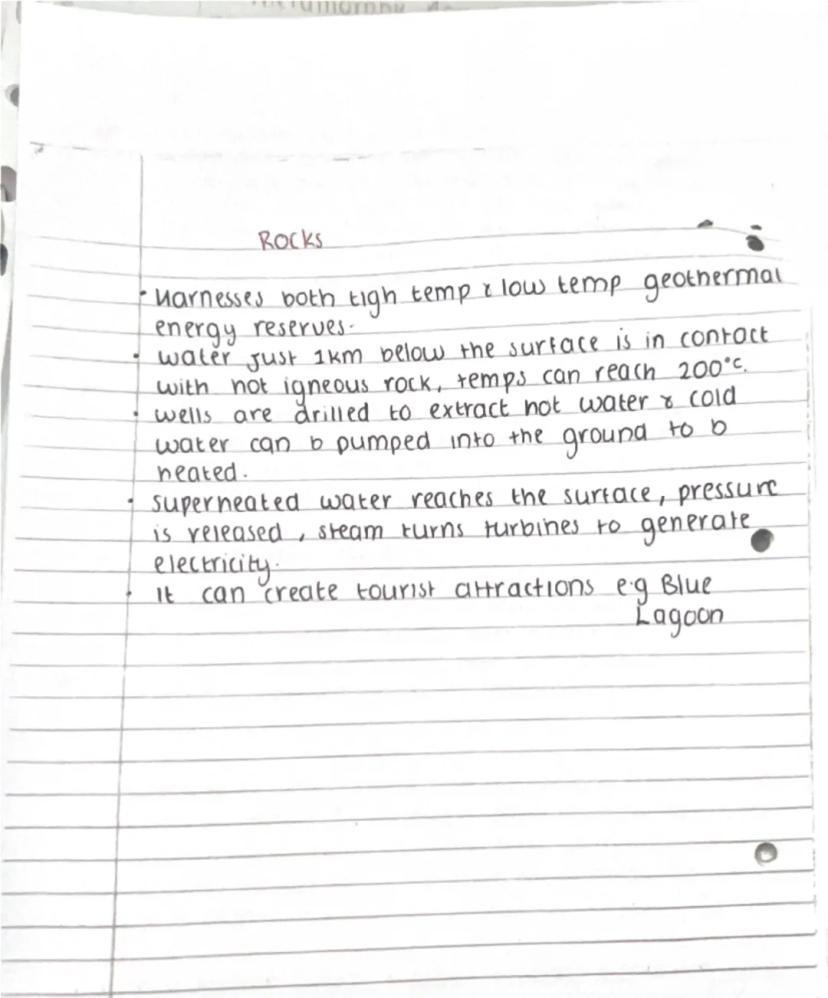 Rocks
· Harnesses both tigh temp & low temp geothermal
energy reserves.
· water just 1km below the surface is in contact
with hot igneous rock, temps can reach 200°c.
· wells are drilled to extract hot water & cold
water can b pumped into the ground to b
heated.
· superheated water reaches the surface, pressure
is released, steam turns turbines to generate
electricity.
· It can create tourist attractions e.g Blue
Lagoon